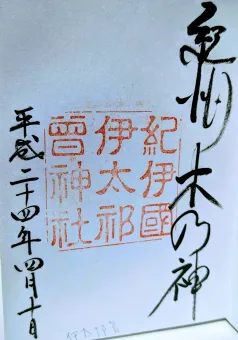 紀州木の神
紀伊國
伊太祁
曽神社
平成二十四年四月十日